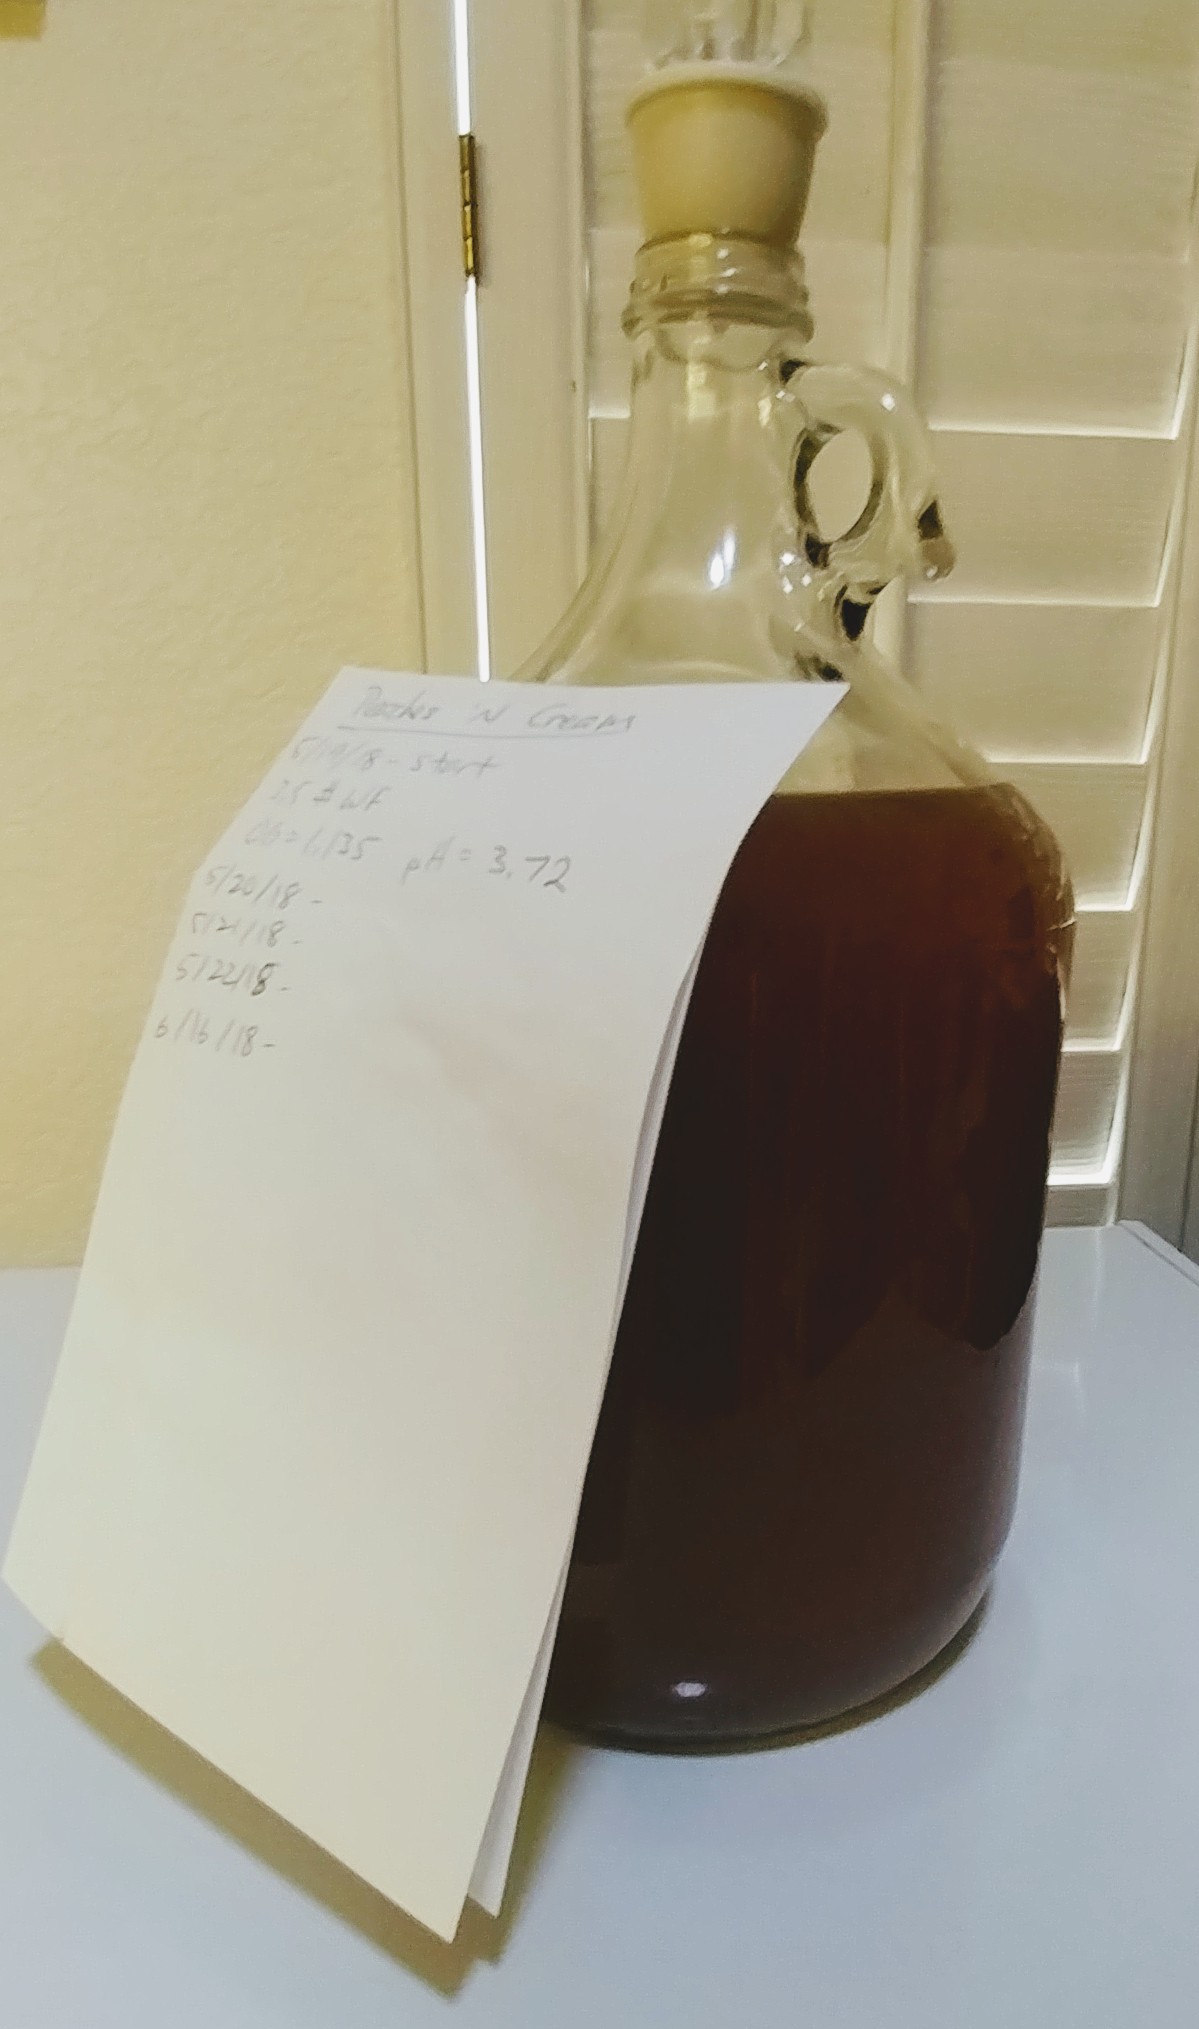 Peaches 'N Cream
5/19/18 - start
3.5 # WF
OG = 1.135 pH = 3.72
5/20/18 -
5/21/18 -
5/22/18 -
6/16/18 -